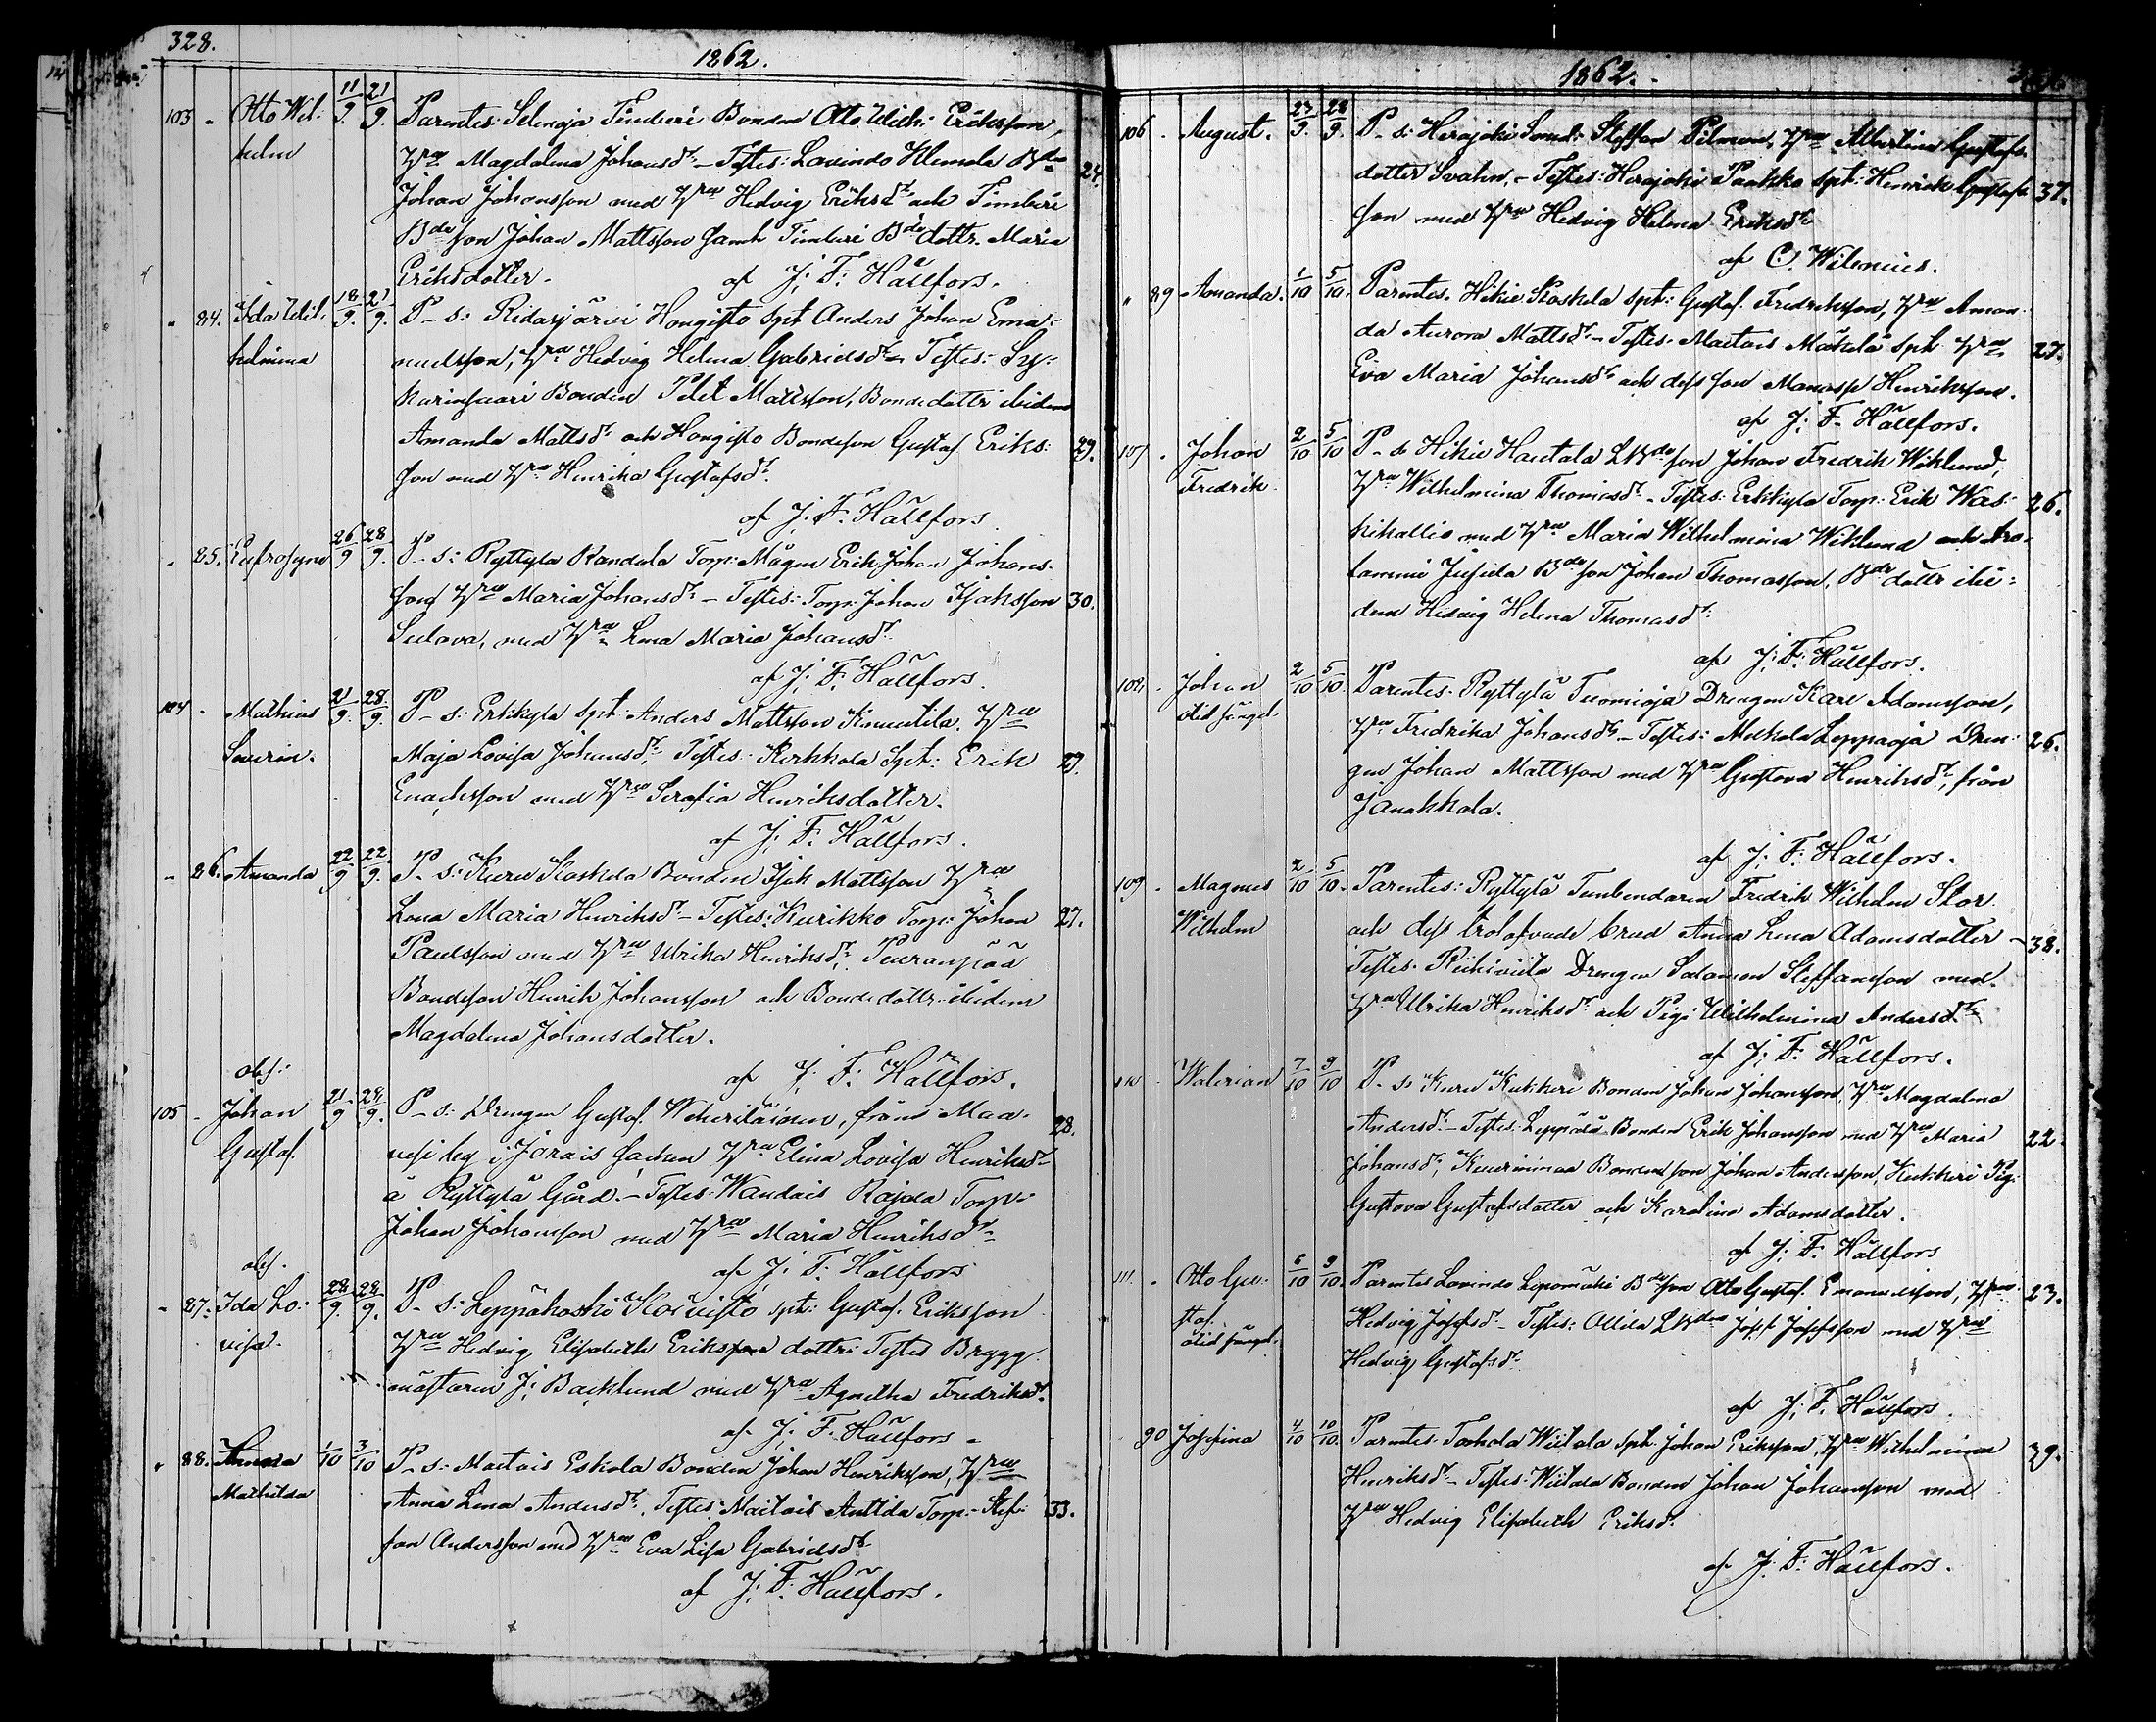 328.
1862.
103 - Otto Wil: 11/9. 21/9. Parentes: Selinoja Timberi Bonden Otto Wilh: Eriksson,
helm Hru Magdalena Johansdr - Testes: Lavindo Klemola Bden 24.
Johan Johansson med Hru Hedvig Eriksdr och Timberi
Bde son Johan Mattsson samt Timberi Bde dottr. Maria
Eriksdotter. af J: F: Hällfors.
- 84. Ida Wil. 18/9. 21/9. P_s: Ridasjärvi Hongisto spt Anders Johan Ema-
helmina nuelsson, Hru Hedvig Helena Gabrielsdr - Testes: Sy-
Bonden Petet Mattsson, Bondedottr ibidem
Amanda Mattsdr och Hongisto Bondeson Gustaf Eriks: 29.
son med Hru Henrika Gustafsdr
af J: F. Hällfors
- 85. Eufrosyne 26/9 28/9. P_s: Ryttylä Kandola Torp: Mågen Erik Johan Johans-
son Hru Maria Johansdr - Testes: Torp: Johan Isaksson 30.
Sulava, med Hru Lena Maria Johansdr
af J: F. Hällfors.
104 - Mathias 21/9. 28/9. P_s: Erkkylä spt: Anders Mattsson Knuutila, Hru
Severin. Maja Lovisa Johansdr, Testes: Kerkkola Spt: Erik 29.
Enochsson med Hru Serafia Henriksdotter.
af J: F. Hällfors.
- 86. Amanda 22/9 22/9. P_s: Kuru Koskela Bonden Isak Mattsson Hru
Lena Maria Henriksdr - Testes: Kurikko Torp: Johan 27.
Paulsson med Hru Ulrika Henriksdr, Peuranpää
Bondeson Henrik Johansson och Bondedottr ibidem
Magdalena Johansdotter.
obs: af J: F: Hällfors.
105 - Johan 21/9 24/9. P_s: Drengen Gustaf Weheriläinen, från Maa- 28.
Gustaf. vesi by i Jorois Socken Hru Elina Lovisa Henriksdr
å Ryttylä Gård. - Testes: Wandais Rajala Torp:
Johan Johansson med Hru Maria Henriksdr
obs. af J: F: Hällfors
- 87. Ida Lo: 24/9. 24/9. P_s: Leppäkoski Koivisto spt: Gustaf Eriksson
visa. Hru Hedvig Elisabeth Eriksson dotter. Testes Brygg-
mästaren J: Backlund med Hru Agnetha Fredriksdr
af J: F. Hällfors
- 88. Anna 1/10 3/10 P_s: Maitois Eskola Bonden Johan Henriksson, Hru
Mathilda Anna Lena Andersdr. Testes: Maitois Anttila Torp: Stef- 33.
fan Andersson med Hru Eva Lisa Gabrielsdr
af J: F: Hällfors.
1862.
106 - August. 27/9. 28/9. P_s: Herajoki Smed: Steffan Pilman, Hru Albertina Gustafs-
dotter Svahn. - Testes: Herajoki Paakko spt: Henrik Gustafs- 37.
son med Hru Hedvig Helena Eriksdr
af O. Wilenius.
- 89 Amanda. 1/10 5/10. Parentes. Hikiä Koskela spt: Gustaf Fredriksson, Hru Aman-
da Aurora Mattsdr - Testes: Maitois Mäkelä spt Hru 27.
Eva Maria Johansdr och dess son Manasse Henriksson.
af J: F. Hällfors.
107 - Johan 2/10 5/10 P_s Hikiä Hautala LBde son Johan Fredrik Wiklund,
Fredrik. Hru Wilhelmina Thomasdr - Testes: Erkkylä Torp: Erik Was- 26.
kikallio med Hru Maria Wilhelmina Wiklund och Aro-
lammi Jusila Bde son Johan Thomasson, Bde dottr ibi-
dem Hedvig Helena Thomasdr
af J: F: Hällfors.
108 - Johan 2/10 5/10. Parentes. Ryttylä Tuomioja Drengen Karl Adamsson,
Hru Fredrika Johansdr - Testes: Melkola Leppäoja Dren- 26.
gen Johan Mattsson med Hru Gustava Henriksdr, från
Janakkala.
af J: F: Hällfors.
109 - Magnus 2/10 5/10. Parentes: Ryttylä Tunbindaren Fredrik Wilhelm Stor.
Wilhelm och dess trolofvade brud Anna Lena Adamsdotter - 38.
Testes. Drengen Salamon Steffansson med
Hru Ulrika Henriksdr och Pig: Wilhelmina Andersdr
af J: F: Hällfors.
110 - Walerian 7/10 9/10 P_s Kuru Kukkeri Bonden Johan Johansson, Hru Magdalena
Andersdr - Testes: Leppälä Bonden Erik Johansson med Hru Maria 22.
Johansdr, Bondens son Johan Andersson, Kukkeri Pig:
Gustava Gustafsdotter och Karolina Adamsdotter.
af J: F. Hällfors
111. - Otto Gu- 6/10 9/10. Parentes Lavindo Lepomäki Bde son Otto Gustaf Emanuelsson, Hru 23.
staf. Hedvig Josefsdr - Testes: Ollila LBden Josef Josefsson med Hru
Hedvig Gustafsdr
af J: F. Hällfors.
90 Josefina 4/10 10/10. Parentes. Torhola Wiitala spt: Johan Eriksson, Hru Wilhelmina 29.
Henriksdr - Testes: Wiitala Bonden Johan Johansson med
Hru Hedvig Elisabeth Eriksdr
af J: F: Hällfors.